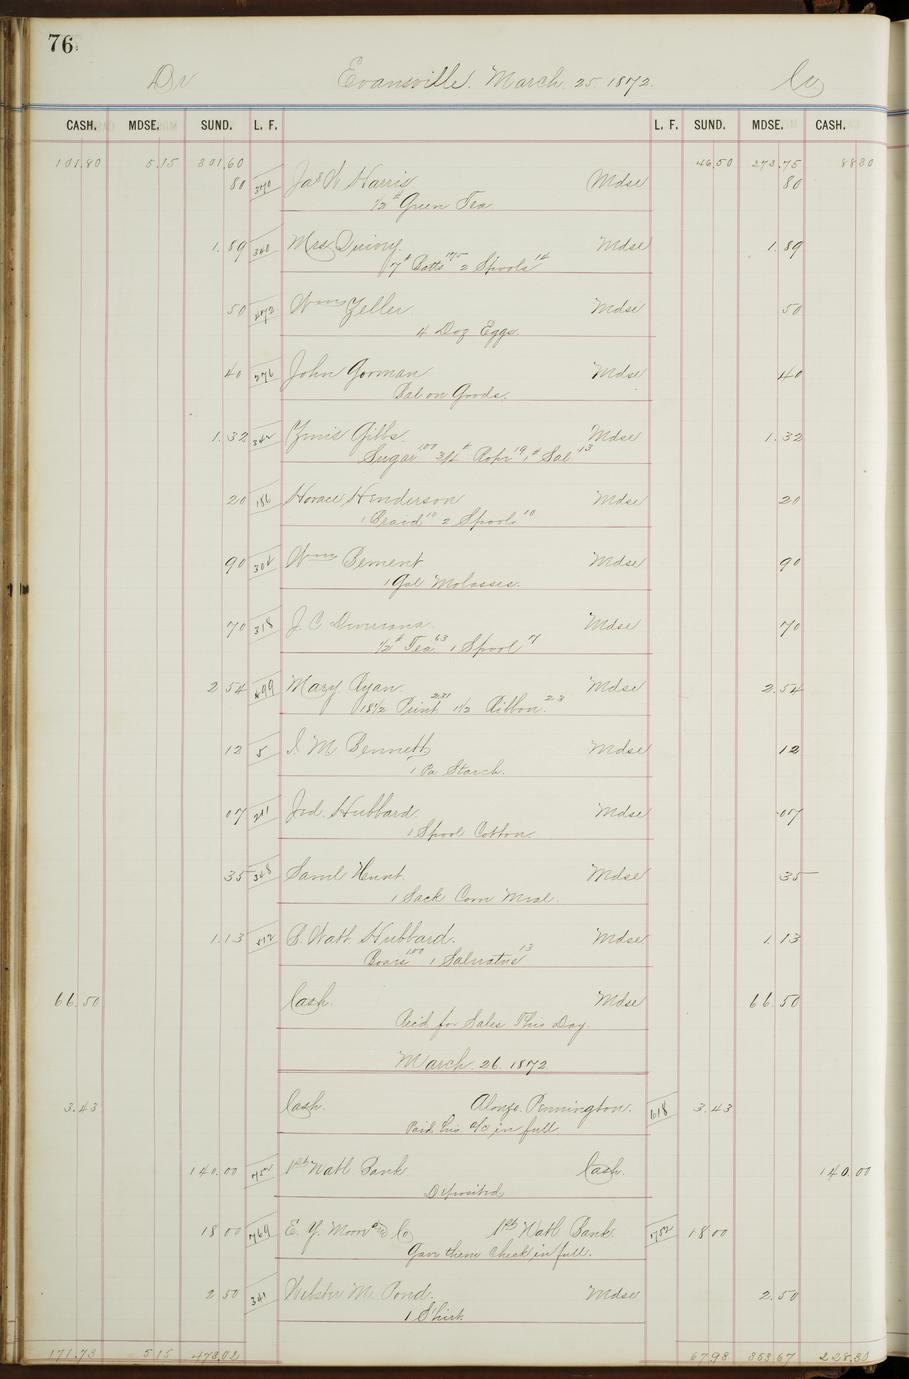 76
Dr Evansville. March. 25. 1872. Cr
CASH. MDSE. SUND. L. F. L. F. SUND. MDSE. CASH.
101.80 5.15 301.60 46.50 273.75 88.30
80 370 Jas W Harris Mdse 80
1/2 # Green Tea
1.89 340 Mrs Quivey. Mdse 1.89
7 # Batts 175 2 Spools 14
50 Wm Zeller Mdse 50
4 Doz Eggs.
40 276 John Gorman Mdse 40
Bal on Goods.
1.32 Gibbs. Mdse 1.32
Sugar 100 3/4 # Rope 19, # Sal 13
20 186 Horace Henderson Mdse 20
1 Braid 10 2 Spools 10
90 304 Wm Bement Mdse 90
1 Gal Molasses.
70 318 J. C. Mdse 70
1/2 # Tea 63 1 Spool 7
2 54 499 Mary Ryan Mdse 2.54
18 1/2 Print 2.31 1 1/2 Ribbon. 23
12 5 I. M. Bennett Mdse 12
1 Pa Starch.
07 211 Jed. Hubbard. Mdse .07
1 Spool Cotton
35 348 Saml Hunt. Mdse 35
1 Sack Corn Meal.
1.13 B. Watt. Hubbard. Mdse 1.13
1.00 1 Saleratus 13
66.50 Cash. Mdse 66.50
Rec'd for Sales This Day.
March. 26. 1872
3.43 Cash. Alonzo. Pennington. 618 3.43
Paid his a/c in full
140.00 752 1st Natl Bank Cash. 140.00
Deposited,
18 00 769 E. Y. Moore and Co 1st Natl Bank. 752 18 00
Gave them Check in full.
2 50 341 Webster M. Pond. Mdse 2.50
1 Shirt
171.73 5.15 473.02 67.93 353.67 228.30